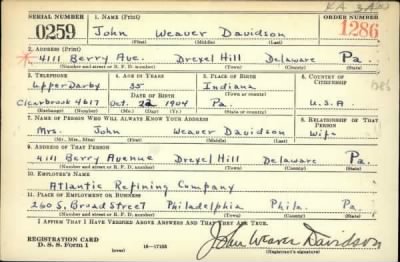 SERIAL NUMBER 1. NAME (Print) ORDER NUMBER
0259 John Weaver Davidson 1286
(First) (Middle) (Last)
2. ADDRESS (Print)
4111 Berry Ave. Drexel Hill Delaware Pa.
(Number and street or R. F. D. number) (Town) (County) (State)
3. TELEPHONE 4. AGE IN YEARS 5. PLACE OF BIRTH 6. COUNTRY OF CITIZENSHIP
Upper Darby 35 Indiana
DATE OF BIRTH (Town or county)
Clearbrook 4617 Oct. 22 1904 Pa. U.S.A.
(Exchange) (Number) (Mo.) (Day) (Yr.) (State or country)
7. NAME OF PERSON WHO WILL ALWAYS KNOW YOUR ADDRESS 8. RELATIONSHIP OF THAT PERSON
Mrs. John Weaver Davidson Wife
(Mr., Mrs., Miss) (First) (Middle) (Last)
9. ADDRESS OF THAT PERSON
4111 Berry Avenue Drexel Hill Delaware Pa.
(Number and street or R. F. D. number) (Town) (County) (State)
10. EMPLOYER'S NAME
Atlantic Refining Company
11. PLACE OF EMPLOYMENT OR BUSINESS
260 S. Broad Street Philadelphia Phila. Pa.
(Number and street or R. F. D. number) (Town) (County) (State)
I AFFIRM THAT I HAVE VERIFIED ABOVE ANSWERS AND THAT THEY ARE TRUE.
REGISTRATION CARD
D. S. S. Form 1 (over) 16—17105 John Weaver Davidson
(Registrant's signature)